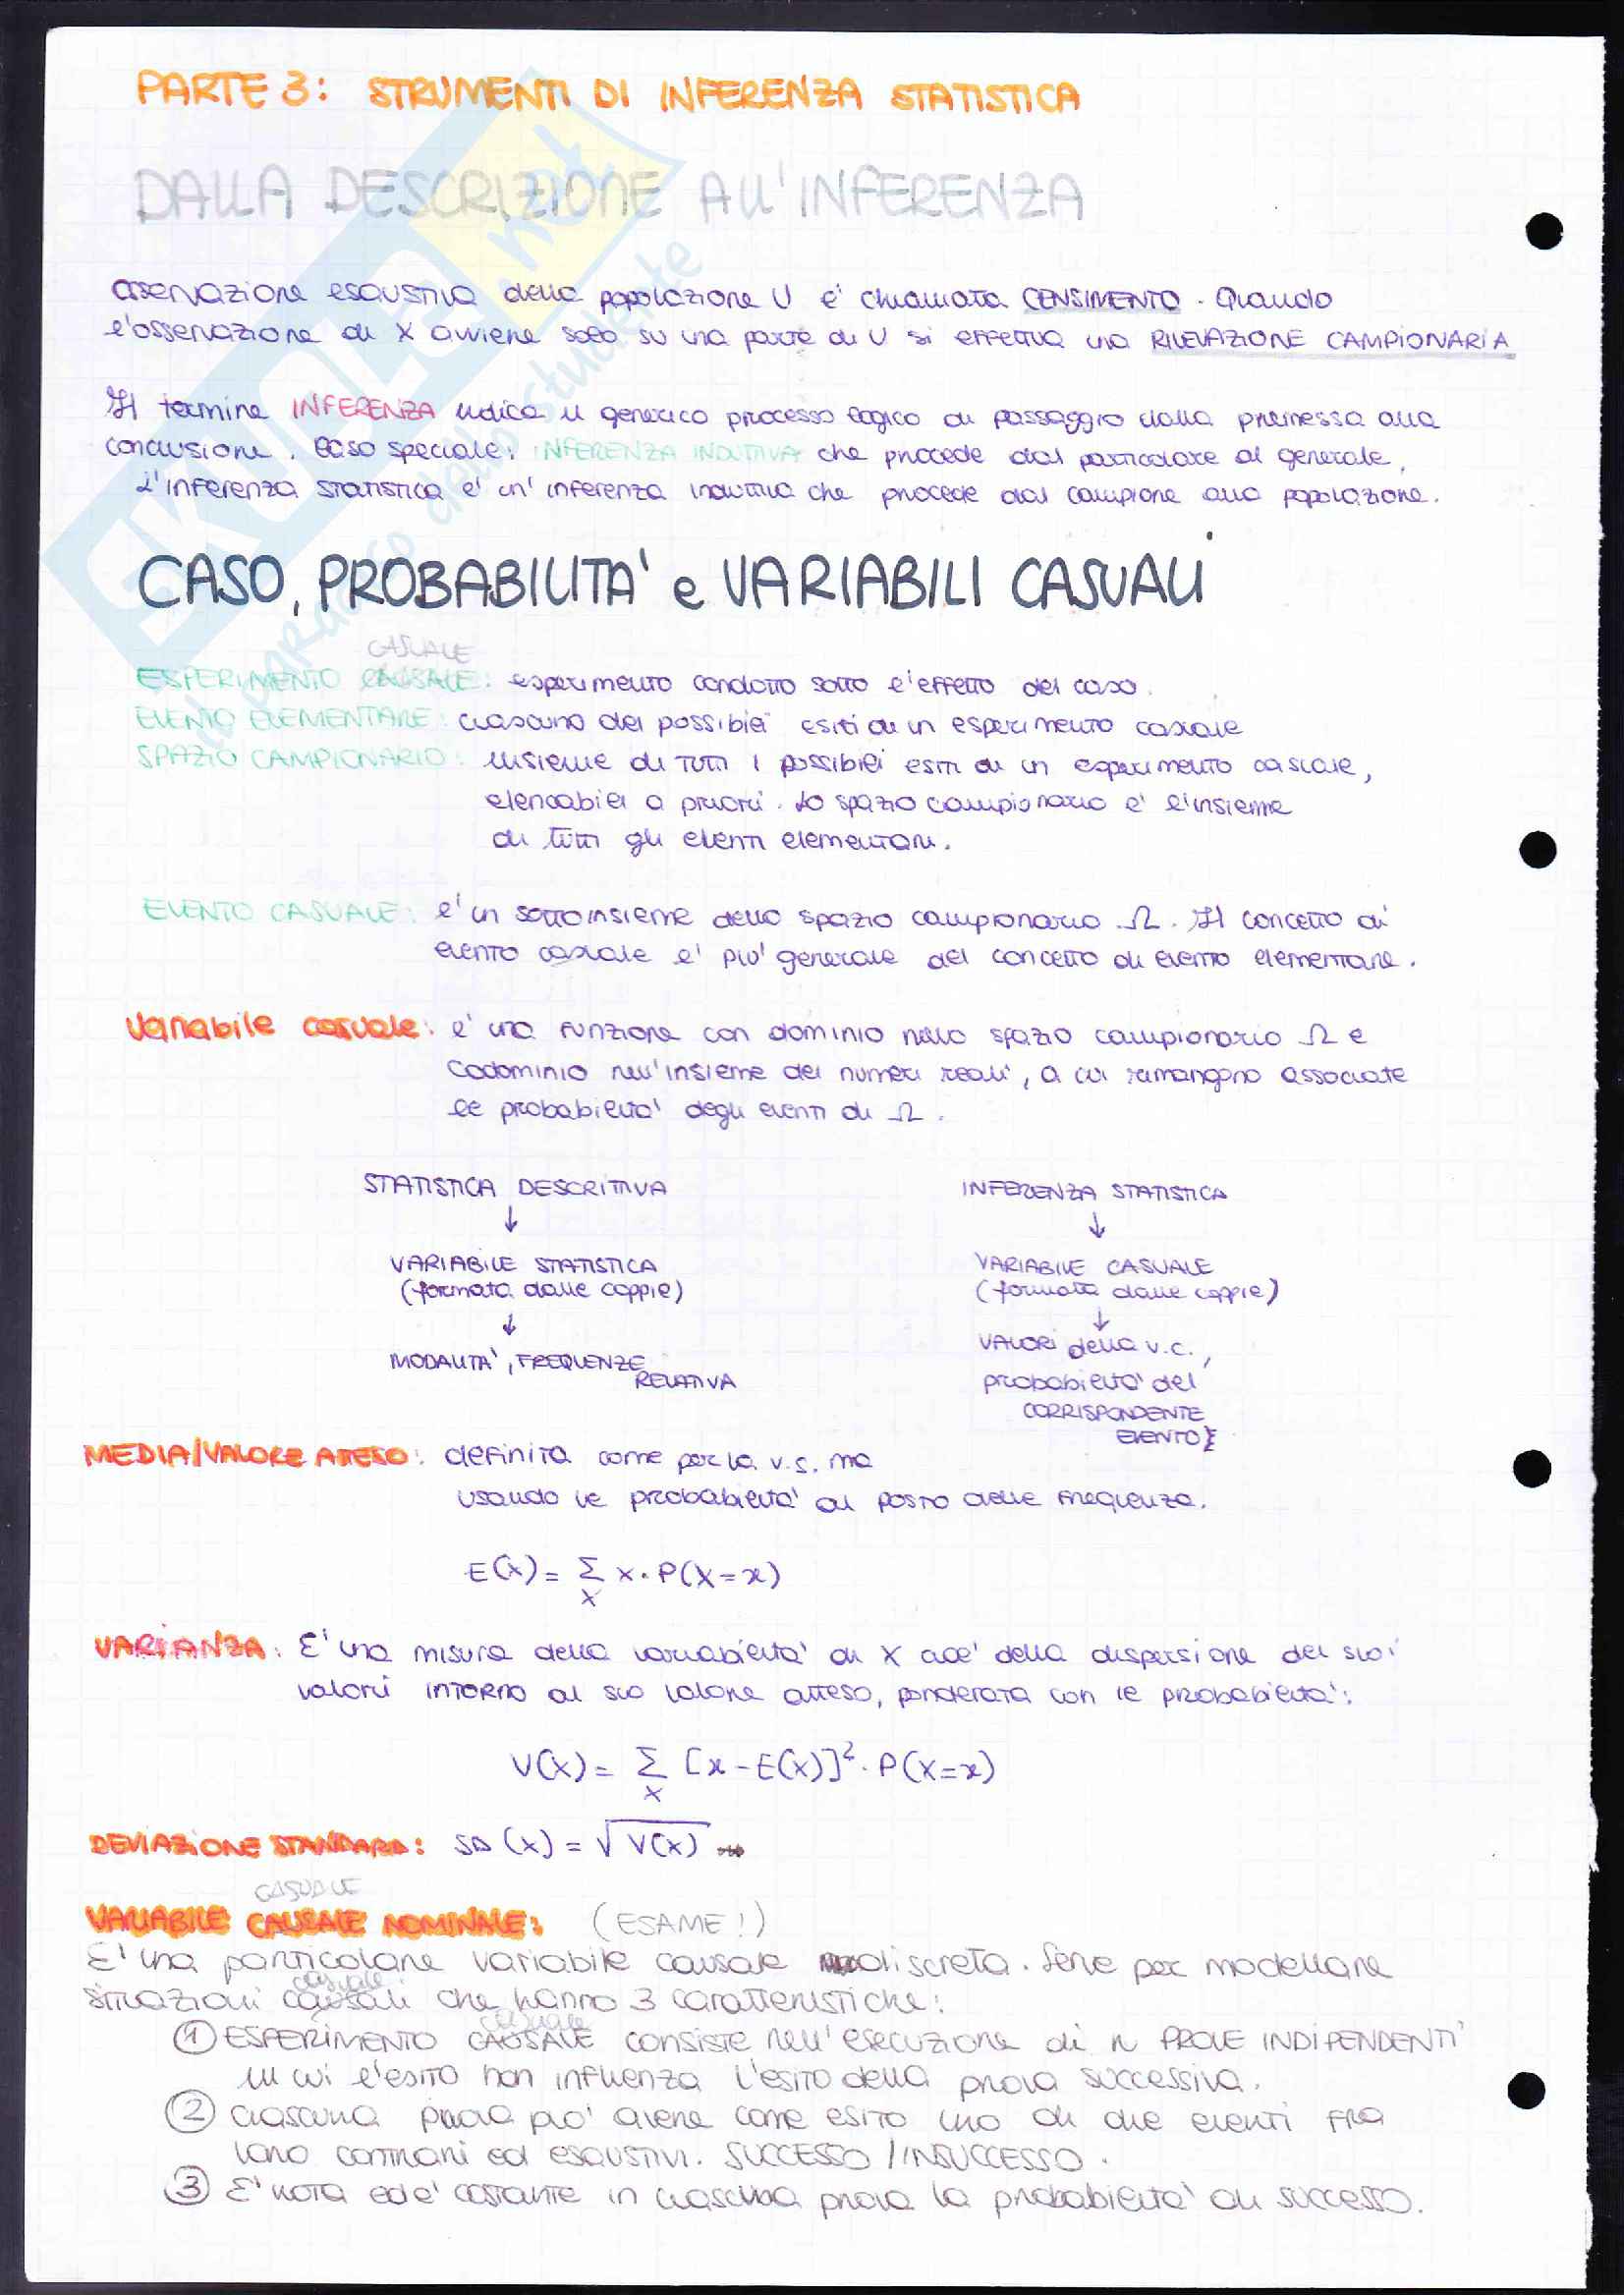 PARTE 3: STRUMENTI DI INFERENZA STATISTICA
DALLA DESCRIZIONE ALL'INFERENZA
osservazione esaustiva della popolazione U e' chiamata CENSIMENTO. Quando
l'osservazione di X avviene solo su una parte di U si effettua una RILEVAZIONE CAMPIONARIA
Il termine INFERENZA indica il generico processo logico di passaggio dalla premessa alla
conclusione. Caso speciale: INFERENZA INDUTTIVA che procede dal particolare al generale.
L'inferenza statistica e' un'inferenza induttiva che procede dal campione alla popolazione.
CASO, PROBABILITA' e VARIABILI CASUALI
CASUALE
ESPERIMENTO CAUSALE: esperimento condotto sotto l'effetto del caso.
EVENTO ELEMENTARE: ciascuno dei possibili esiti di un esperimento casuale
SPAZIO CAMPIONARIO: insieme di tutti i possibili esiti di un esperimento casuale,
elencabili a priori. Lo spazio campionario e' l'insieme
di tutti gli eventi elementari.
EVENTO CASUALE: e' un sottoinsieme dello spazio campionario Ω. Il concetto di
evento casuale e' piu' generale del concetto di evento elementare.
Variabile casuale: e' una funzione con dominio nello spazio campionario Ω e
codominio nell'insieme dei numeri reali, a cui rimangono associate
le probabilita' degli eventi di Ω.
STATISTICA DESCRITTIVA INFERENZA STATISTICA
↓ ↓
VARIABILE STATISTICA VARIABILE CASUALE
(formata dalle coppie) (formata dalle coppie)
↓ ↓
MODALITA', FREQUENZE VALORI della v.c.,
RELATIVA probabilita' del
CORRISPONDENTE
EVENTO}
MEDIA/VALORE ATTESO: definita come per la v.s. ma
usando le probabilita' al posto delle frequenze.
E(X) = Σ x · P(X=x)
x
VARIANZA: E' una misura della variabilita' di X cioe' della dispersione dei suoi
valori intorno al suo valore atteso, ponderata con le probabilita':
V(X) = Σ [x - E(X)]² · P(X=x)
x
DEVIAZIONE STANDARD: SD (X) = √V(X)
CASUALE
VARIABILE CAUSALE NOMINALE: (ESAME!)
E' una particolare variabile causale discreta. Serve per modellare
casuale
situazioni causali che hanno 3 caratteristiche:
casuale
① ESPERIMENTO CAUSALE consiste nell'esecuzione di n PROVE INDIPENDENTI
in cui l'esito non influenza l'esito della prova successiva.
② ciascuna prova puo' avere come esito uno di due eventi fra
loro contrari ed esaustivi. SUCCESSO / INSUCCESSO.
③ E' nota ed e' costante in ciascuna prova la probabilita' di successo.
SKUOLA.net
il paradiso dello studente